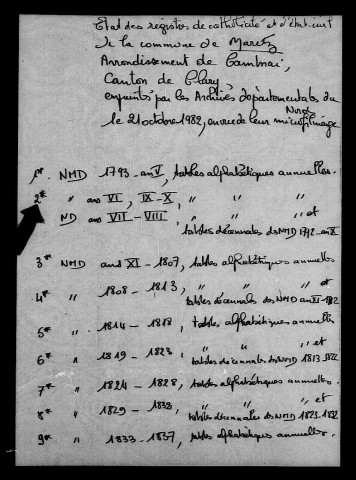 Etat des registres de catholicité et d'état civil
de la commune de Maretz
Arrondissement de Cambrai,
Canton de Clary,
empruntés par les Archives départementales du
Nord
le 21 octobre 1982, en vue de leur microfilmage
1* NMD 1793 - an V, tables alphabétiques annuelles.
2* " ans VI, IX-X, " " "
ND ans VII-VIII, " " " et
tables décennales des NMD 1792-an X
3* NMD ans XI - 1807, tables alphabétiques annuelles
4* " 1808 - 1813, " " " et
tables décennales des NMD an XI-1812
5* " 1814 - 1818, tables alphabétiques annuelles
6* " 1819 - 1823, " " " et
tables décennales des NMD 1813-1822
7* " 1824 - 1828, tables alphabétiques annuelles.
8* " 1829 - 1833, " " " et
tables décennales des NMD 1823-1832
9* " 1833 - 1837, tables alphabétiques annuelles.